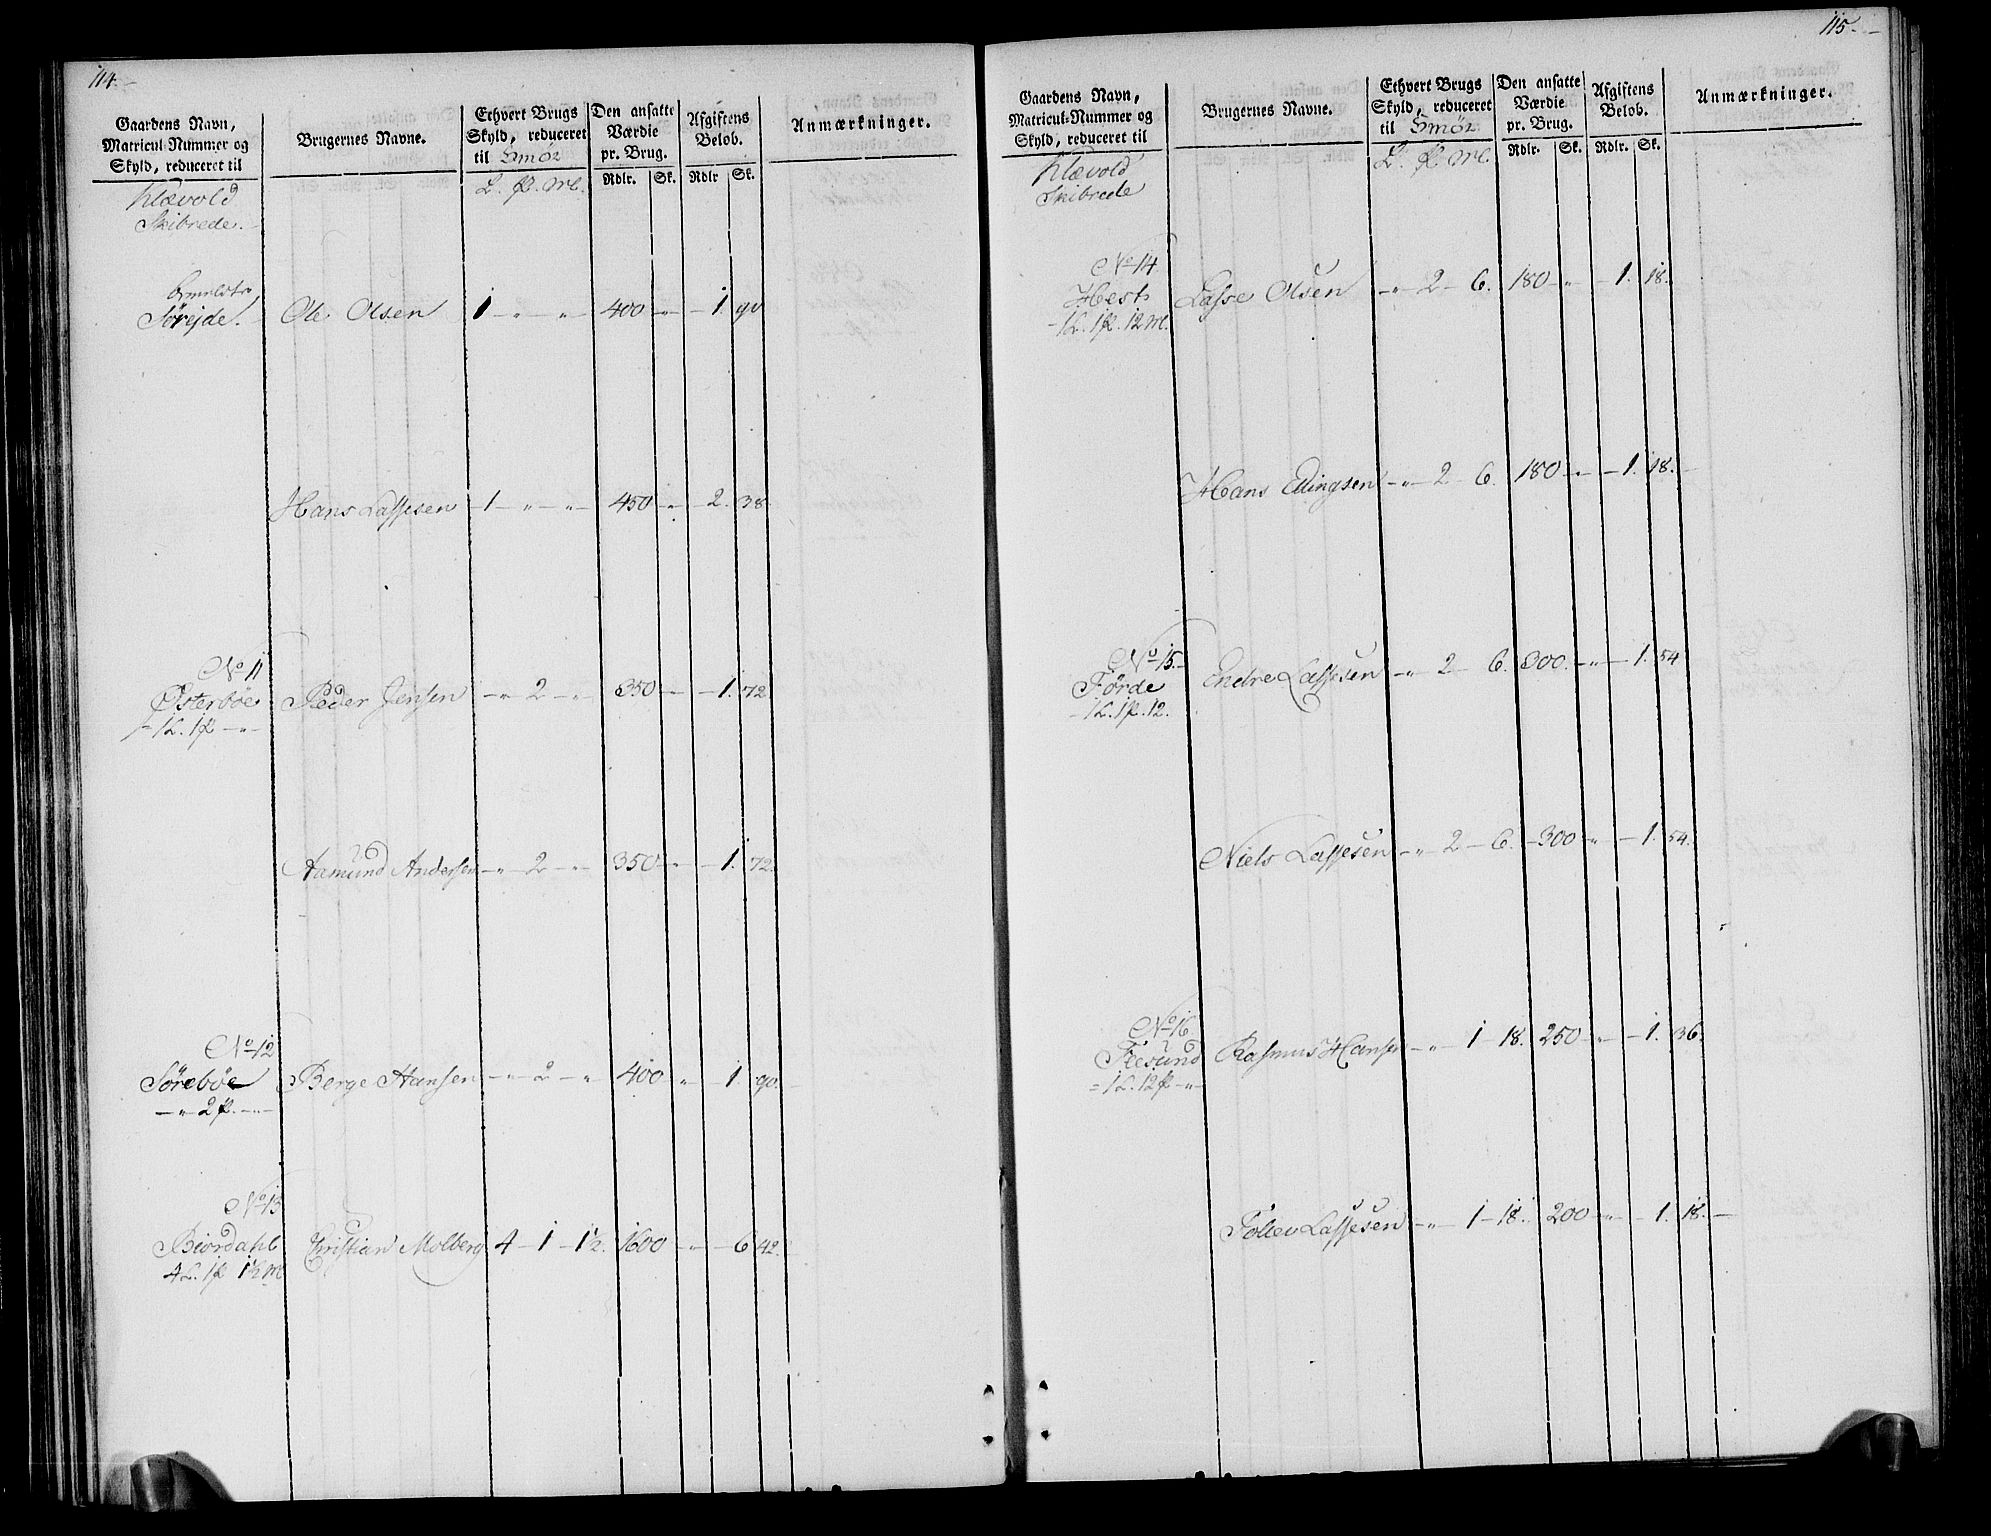 114.
Gaardens Navn, Matricul-Nummer og Skyld, reduceret til
Brugernes Navne.
Ethvert Brugs Skyld, reduceret til Smör
Den ansatte Værdie pr. Brug.
Afgiftens Belob.
Anmærkninger.
L. . Mc. Rdlr. Sk. Rdlr Sk.
Klævold
Skibrede.
Sörejde. Ole Olsen 1 - " - " 400 - " - 1. 90
Hans Lassesen - 1 - " - " - 450 - " - 2. 38.
No 11
Østerböe Peder Jensen - " 2 - " 350 - " - 1. 72
Aamund Andersen - " - 2 - " - 350 - " - 1. 72.
No 12
Sörebøe Berge Hansen - " - 2 - " 400 " - 1. 90.
No 13
Biordahl Christian Molberg 4 - 1 - 1½. 1600 - " - 6 42.
115.
Gaardens Navn, Matricul-Nummer og Skyld, reduceret til
Brugernes Navne.
Ethvert Brugs Skyld, reduceret til Smör
Den ansatte Værdie pr. Brug.
Afgiftens Belob.
Anmærkninger.
L. . Mc. Rdlr. Sk. Rdlr. Sk.
Klævold
Skibrede
No 14
Lasse Olsen - " 2 - 6. 180 - " - 1. 18.
Hans Ellingsen - " - 2 - 6. 180 - " - 1. 18.
No 15.
Förde Endre Lassesen - " 2 - 6. 300. - " - 1. 54
Niels Lassesen - " 2 - 6. 300 " - 1. 54.
No 16
Rasmus Hansen - " 1 - 18. 250 - " - 1. 36.
Tollev Lassesen - " - 1 - 18. 200 - " - 1. 18.